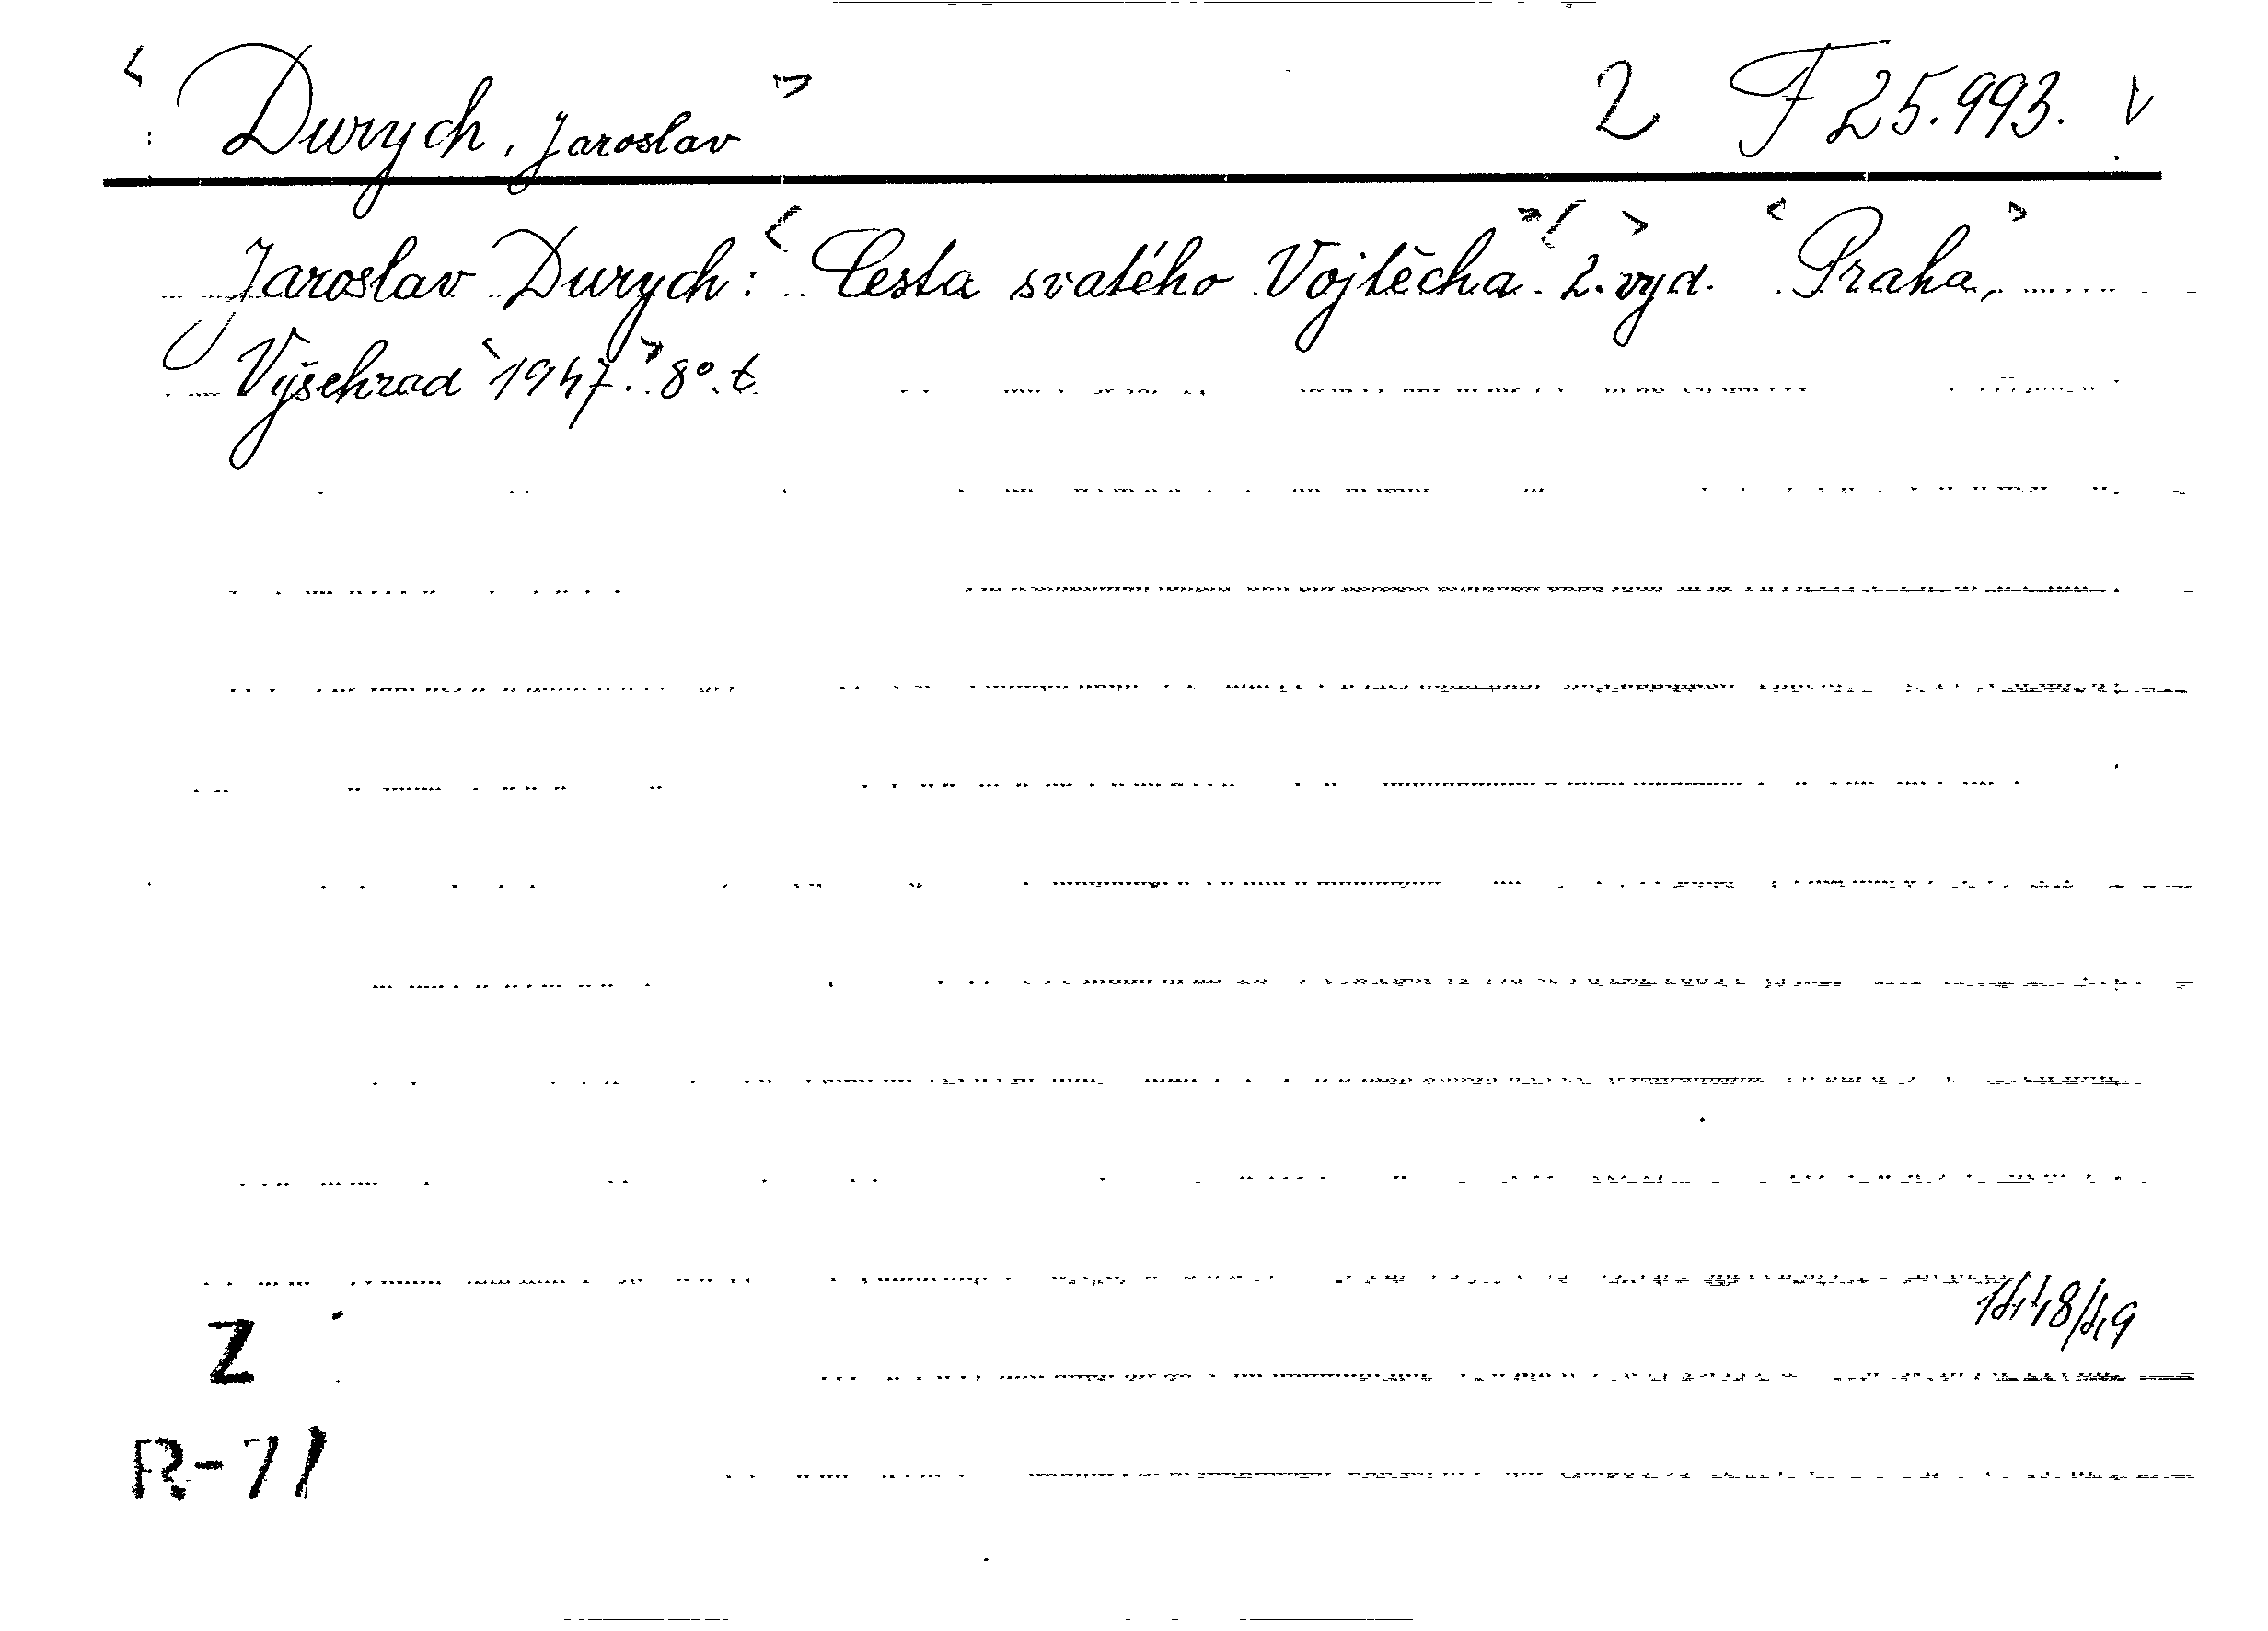 < Durych, Jaroslav > 2 F 25.993. V
Jaroslav Durych: < Cesta svatého Vojtěcha. > < 2. > vyd. < Praha, >
Vyšehrad < 1947. > 8°. t.
1448/49
Z
R-71